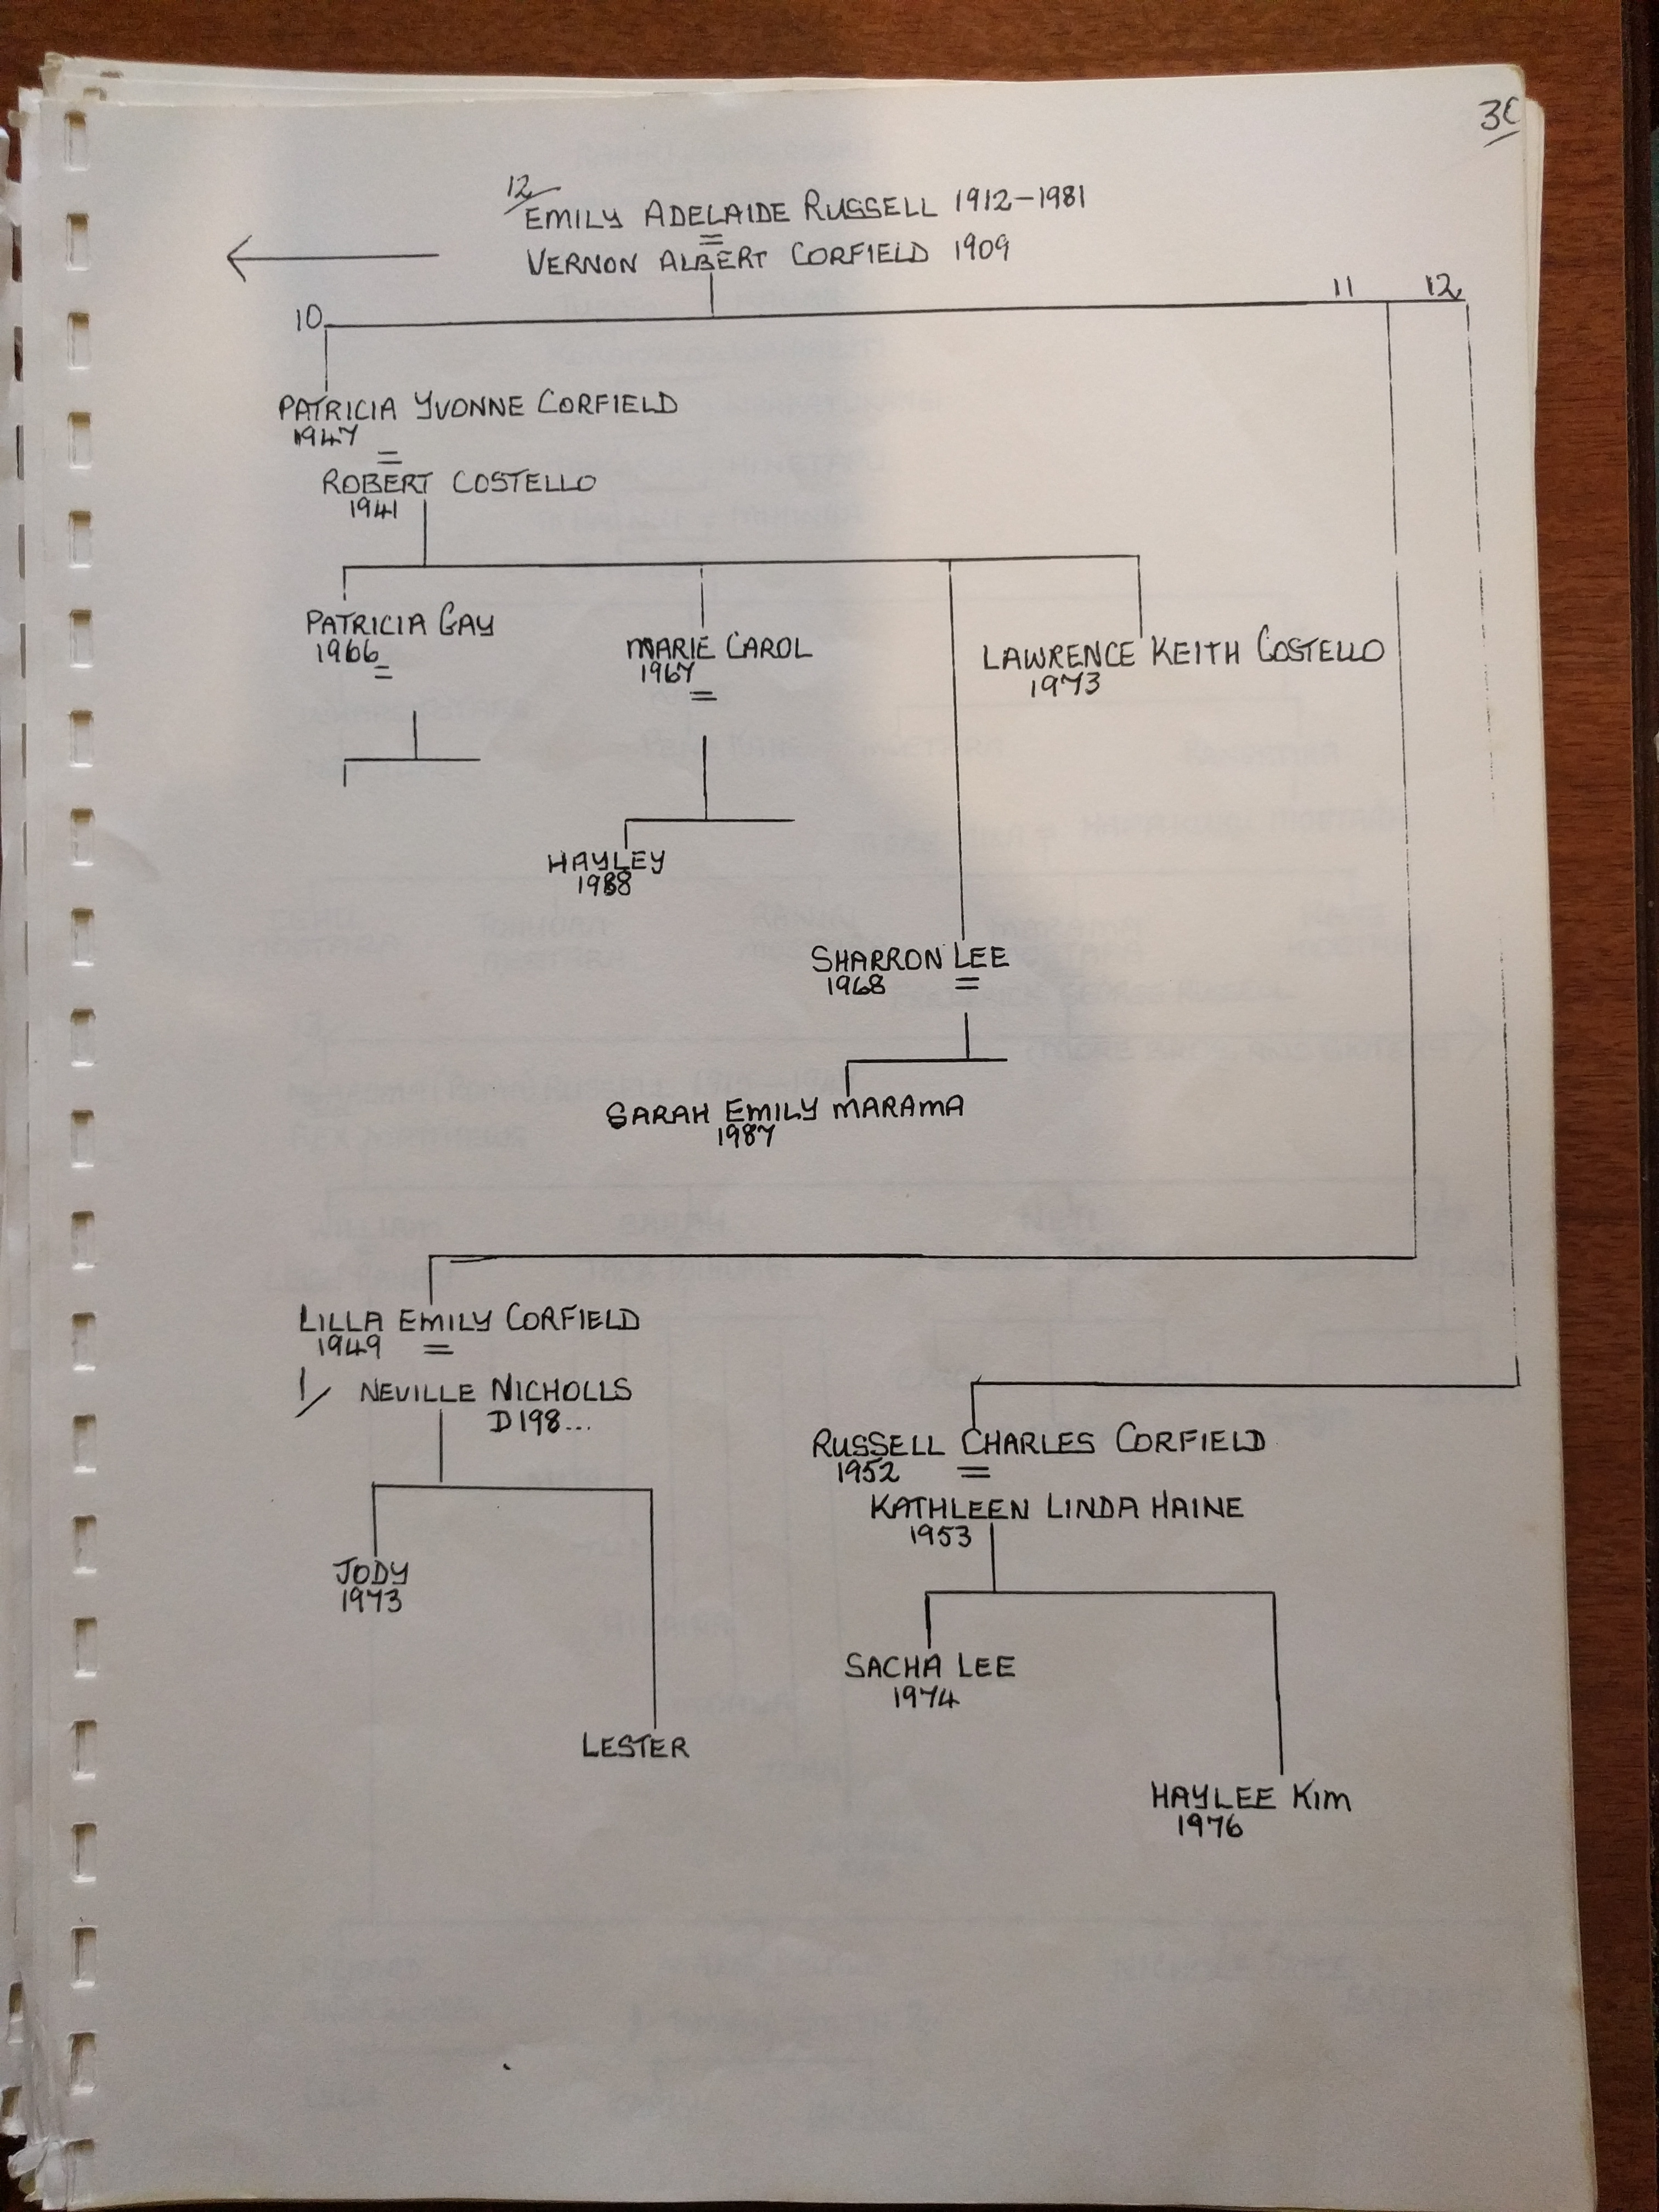 3C
12/
EMILY ADELAIDE RUSSELL 1912-1981
=
VERNON ALBERT CORFIELD 1909
10
11
12
PATRICIA YVONNE CORFIELD
1947
=
ROBERT COSTELLO
1941
PATRICIA GAY
1966
=
MARIE CAROL
1967
=
LAWRENCE KEITH COSTELLO
1973
HAYLEY
1988
SHARRON LEE
1968 =
SARAH EMILY MARAMA
1987
LILLA EMILY CORFIELD
1949 =
1/ NEVILLE NICHOLLS
D198...
RUSSELL CHARLES CORFIELD
1952 =
KATHLEEN LINDA HAINE
1953
JODY
1973
SACHA LEE
1974
LESTER
HAYLEE KIM
1976